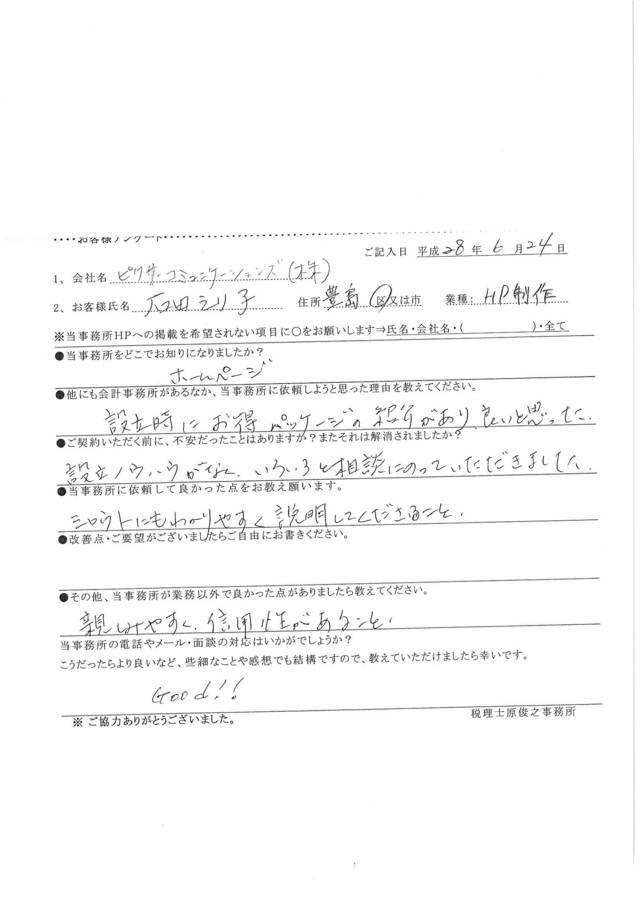 ・・・・お客様アンケート・・・・
ご記入日 平成28年6月24日
1、会社名 ピクサーコミュニケーションズ(株)
2、お客様氏名 石田 り子 住所 豊島 区又は市 業種：HP制作
※当事務所HPへの掲載を希望されない項目に○をお願いします⇒氏名・会社名・( )・全て
●当事務所をどこでお知りになりましたか？
ホームページ
●他にも会計事務所があるなか、当事務所に依頼しようと思った理由を教えてください。
設立時にお得パッケージの紹介があり、良いと思った。
●ご契約いただく前に、不安だったことはありますか？またそれは解消されましたか？
設立ノウハウがなく、いろいろと相談にのっていただきました。
●当事務所に依頼して良かった点をお教え願います。
シロウトにもわかりやすく説明してくださること。
●改善点・ご要望がございましたらご自由にお書きください。
●その他、当事務所が業務以外で良かった点がありましたら教えてください。
親しみやすく、信用性があること。
当事務所の電話やメール・面談の対応はいかがでしょうか？
こうだったらより良いなど、些細なことや感想でも結構ですので、教えていただけましたら幸いです。
Good!!
※ ご協力ありがとうございました。
税理士原俊之事務所